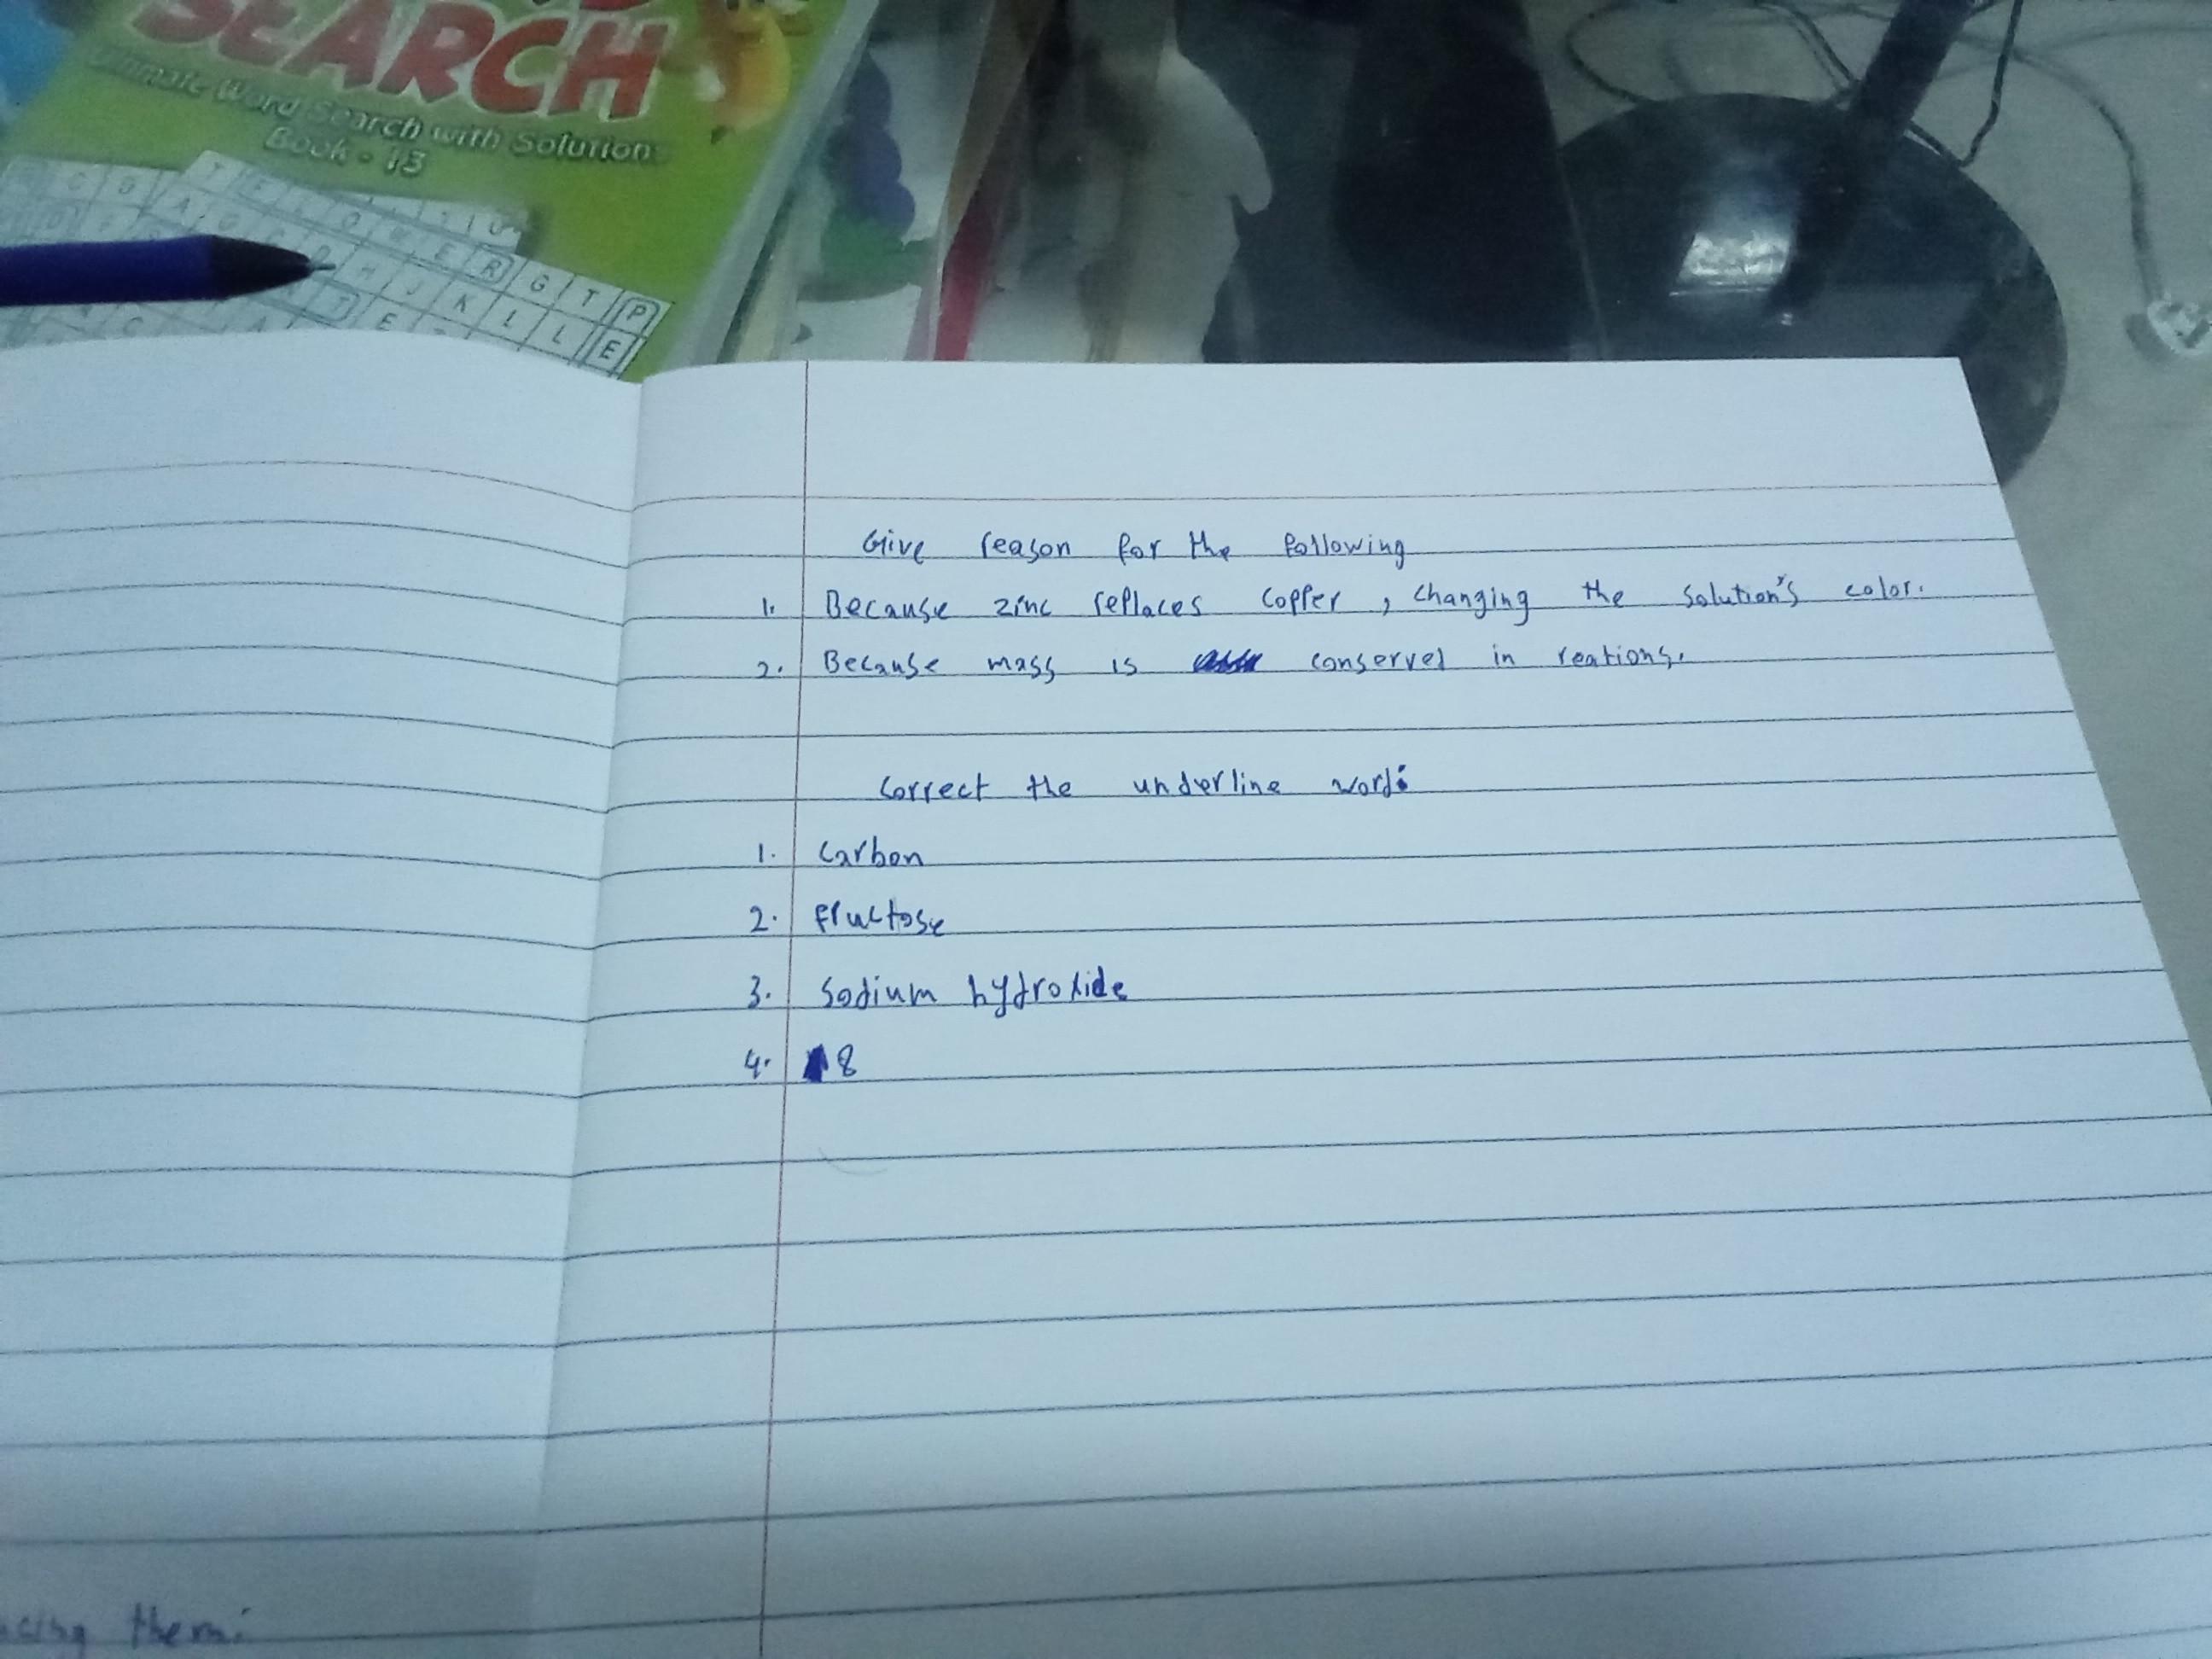 SEARCH
Ultimate Word Search with Solutions
Book - 13
G T P
H J K L L E
Give reason for the following
1. Because zinc replaces copper, changing the solution's color.
2. Because mass is conserved in reations.
Correct the underline word:
1. Carbon
2. fructose
3. Sodium hydroxide
4. 8
them: